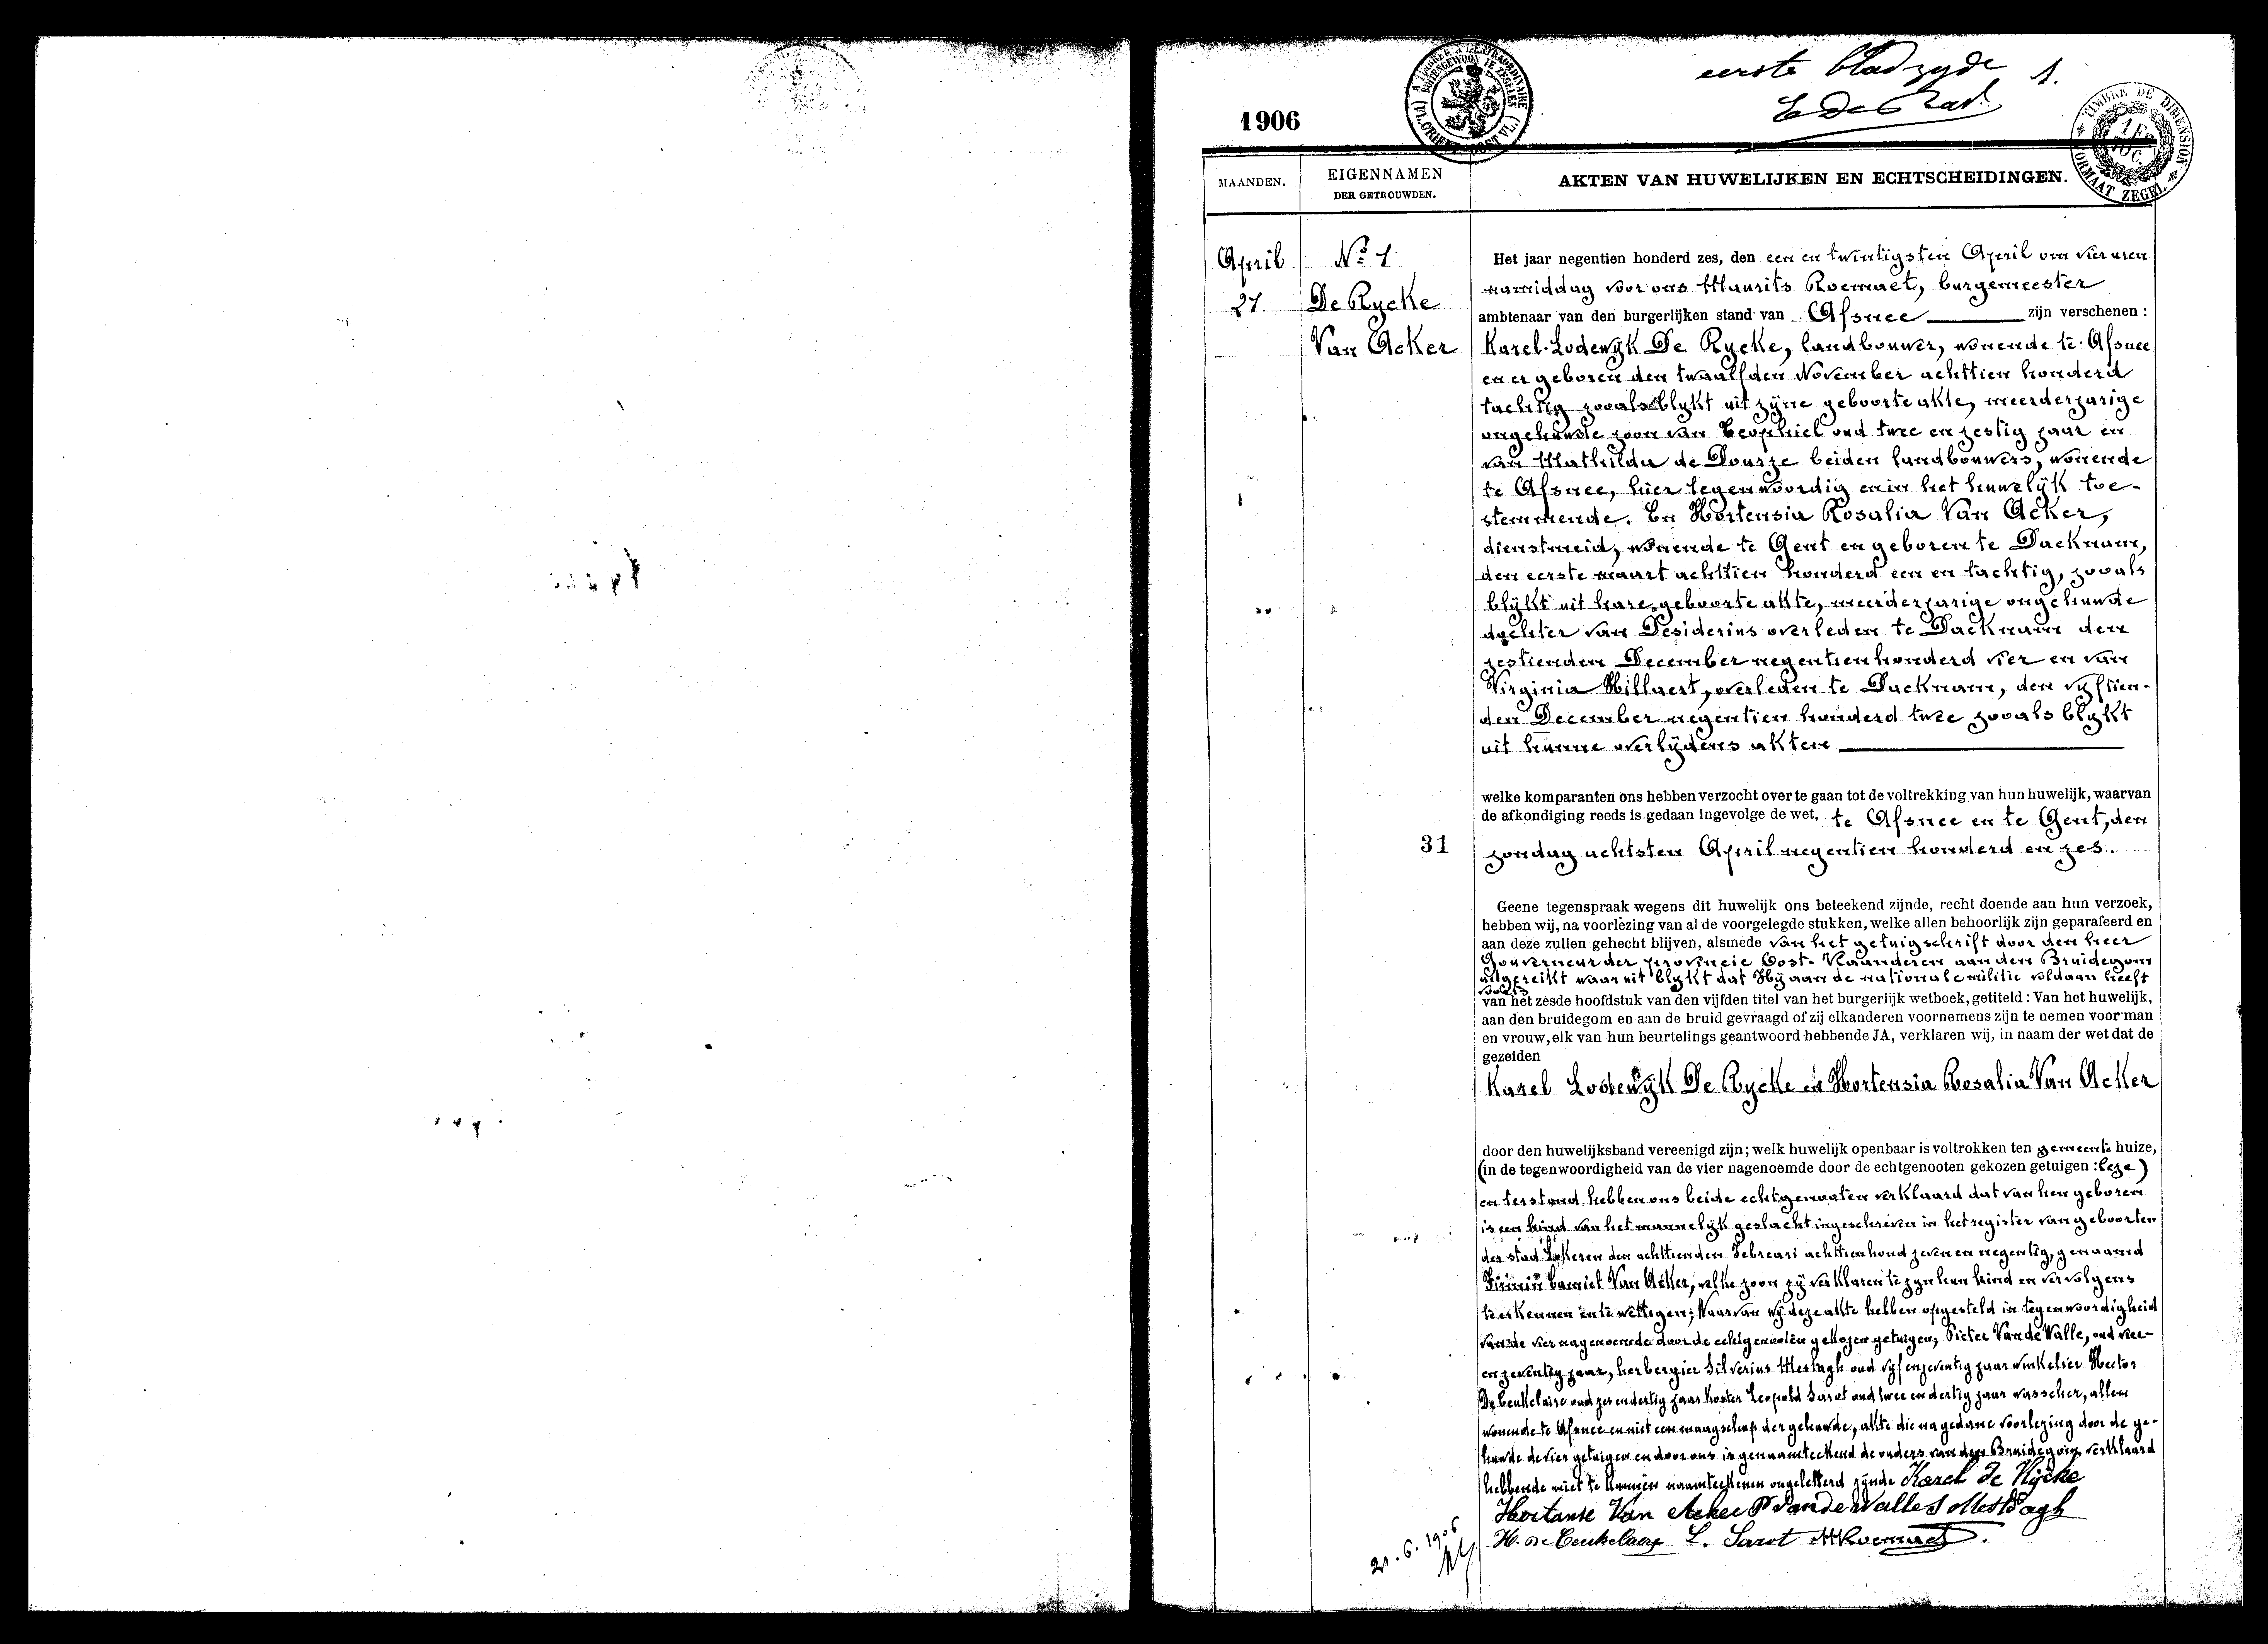 eerste bladzyde 1.
1906
TIMBRE DE DIMENSION
FORMAAT ZEGEL
MAANDEN.
EIGENNAMEN
DER GETROUWDEN.
AKTEN VAN HUWELIJKEN EN ECHTSCHEIDINGEN.
April
21
No 1
De Rycke
Van Acker
Het jaar negentien honderd zes, den een en twintigsten April om vier uren
namiddag voor ons Maurits Roemaet, burgemeester
ambtenaar van den burgerlijken stand van Afsnee zijn verschenen :
Karel-Lodewyk De Rycke, landbouwer, wonende te Afsnee
en er geboren den twaalfden November achttien honderd
tachtig zooals blykt uit zyne geboorte akte, meerderjarige
ongehuwde zoon van Teophiel oud twee en zestig jaar en
van Mathilda de Dourze beiden landbouwers, wonende
te Afsnee, hier tegenwoordig en in het huwelyk toe-
stemmende. En Hortensia Rosalia Van Acker,
dienstmeid, wonende te Gent en geboren te Dacknam,
den eerste maart achttien honderd een en tachtig, zooals
blykt uit hare geboorte akte, meerderjarige ongehuwde
dochter van Desiderius overleden te Dacknam den
zestienden December negentien honderd vier en van
Virginia Hillaert, overleden te Dacknam, den vyftien-
den December negentien honderd twee zooals blykt
uit hunne overlydens akten
welke komparanten ons hebben verzocht over te gaan tot de voltrekking van hun huwelijk, waarvan
de afkondiging reeds is gedaan ingevolge de wet, te Afsnee en te Gent, den
31
zondag achtsten April negentien honderd en zes.
Geene tegenspraak wegens dit huwelijk ons beteekend zijnde, recht doende aan hun verzoek,
hebben wij, na voorlezing van al de voorgelegde stukken, welke allen behoorlijk zijn geparafeerd en
aan deze zullen gehecht blijven, alsmede van het getuigschrift door den heer
Gouverneur der provincie Oost-Vlaanderen aan den Bruidegom
uitgereikt waaruit blykt dat Hy aan de nationale militie voldaan heeft
van het zesde hoofdstuk van den vijfden titel van het burgerlijk wetboek, getiteld : Van het huwelijk,
aan den bruidegom en aan de bruid gevraagd of zij elkanderen voornemens zijn te nemen voor man
en vrouw, elk van hun beurtelings geantwoord hebbende JA, verklaren wij, in naam der wet dat de
gezeiden
Karel Lodewyk De Rycke en Hortensia Rosalia Van Acker
door den huwelijksband vereenigd zijn; welk huwelijk openbaar is voltrokken ten gemeente huize,
(in de tegenwoordigheid van de vier nagenoemde door de echtgenooten gekozen getuigen : leze)
en terstond hebben ons beide echtgenooten verklaard dat van hen geboren
is een kind van het mannelyk geslacht ingeschreven in het register van geboorten
der stad Lokeren den achttienden Februari achttienhond zeven en negentig, genaamd
Firmin Camiel Van Acker, welke zoon zy verklaren te zyn hun kind en vervolgens
te erkennen en te wettigen; Waarvan wy deze akte hebben opgesteld in tegenwoordigheid
van de vier nagenoemde door de echtgenooten gekozen getuigen, Pieter Van de Walle, oud vier-
en zeventig jaar, herbergier Silverius Mestagh oud vyf en zeventig jaar winkelier Hector
De Ceukelaire oud zes en dertig jaar koster Leopold Sarot oud twee en dertig jaar wasscher, allen
wonende te Afsnee en niet een maagschap der gehuwde, akte die na gedane voorlezing door de ge-
huwde de vier getuigen en door ons is genaamteekend de ouders van den Bruidegom verklaard
hebbende niet te kunnen naamteekenen ongeletterd zynde Karel De Rycke
Hortanse Van Acker P Van de Walle S Mestdagh
H. De Ceukelaere L. Sarot M Roemaet
21.6.1906